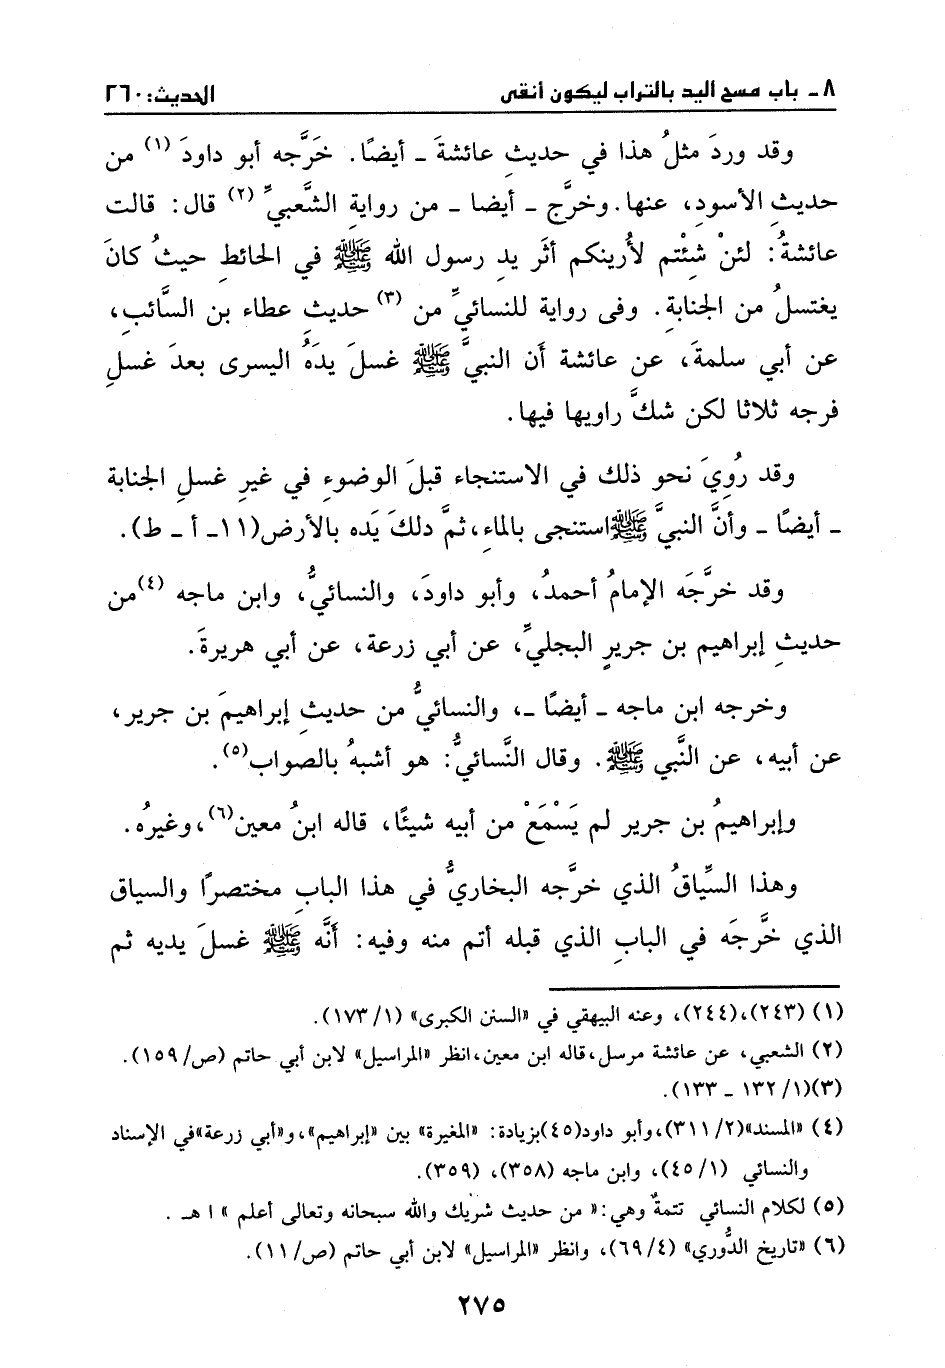 ٨ - باب مسح اليد بالتراب ليكون أنقى الحديث: ٢٦٠
وقد وردَ مثلُ هذا في حديثِ عائشةَ - أيضًا. خَرَّجه أبو داودَ (١) من
حديثِ الأسودِ، عنها. وخرَّج - أيضا - من روايةِ الشَّعبيِّ (٢) قال: قالت
عائشةُ: لئنْ شِئْتم لأُرينكم أثَر يدِ رسول الله ﷺ في الحائطِ حيثُ كانَ
يغتسلُ من الجنابةِ. وفى رواية للنسائيِّ من (٣) حديثِ عطاء بن السَّائبِ،
عن أبي سلمةَ، عن عائشة أن النبيَّ ﷺ غسلَ يدَهُ اليسرى بعدَ غسلِ
فرجه ثلاثا لكن شكَّ راويها فيها.
وقد رُوِيَ نحو ذلك في الاستنجاء قبلَ الوضوءِ في غيرِ غسلِ الجنابة
- أيضًا - وأنَّ النبيَّ ﷺ استنجى بالماءِ، ثمَّ دلكَ يَده بالأرض (١١- أ - ط).
وقد خرَّجَه الإمامُ أحمدُ، وأبو داودَ، والنسائيُّ، وابن ماجه (٤) من
حديثِ إبراهيم بن جريرٍ البجليِّ، عن أبي زرعة، عن أبي هريرةَ.
وخرجه ابن ماجه - أيضًا -، والنسائيُّ من حديثِ إبراهيمَ بن جرير،
عن أبيه، عن النَّبي ﷺ. وقال النَّسائيُّ: هو أشبهُ بالصواب(٥).
وإبراهيمُ بن جرير لم يَسْمَعْ من أبيه شيئًا، قاله ابنُ معين(٦)، وغيرُه.
وهذا السِّياقُ الذي خرَّجه البخاريُّ في هذا البابِ مختصرًا والسياق
الذي خرَّجَه في البابِ الذي قبله أتم منه وفيه: أَنَّه ﷺ غسلَ يديه ثم
(١) (٢٤٣)،(٢٤٤)، وعنه البيهقي في «السنن الكبرى» (١/ ١٧٣).
(٢) الشعبي، عن عائشة مرسل، قاله ابن معين، انظر «المراسيل» لابن أبي حاتم (ص/ ١٥٩).
(٣)(١/ ١٣٢ - ١٣٣).
(٤) «المسند»(٢/ ٣١١)، وأبو داود(٤٥)بزيادة: «المغيرة» بين «إبراهيم»، و«أبي زرعة»في الإسناد
والنسائي (١/ ٤٥)، وابن ماجه (٣٥٨)، (٣٥٩).
(٥) لكلام النسائي تتمةٌ وهي:« من حديث شريك والله سبحانه وتعالى أعلم » ا هـ .
(٦) «تاريخ الدُّوري» (٤/ ٦٩)، وانظر «المراسيل» لابن أبي حاتم (ص/ ١١).
٢٧٥